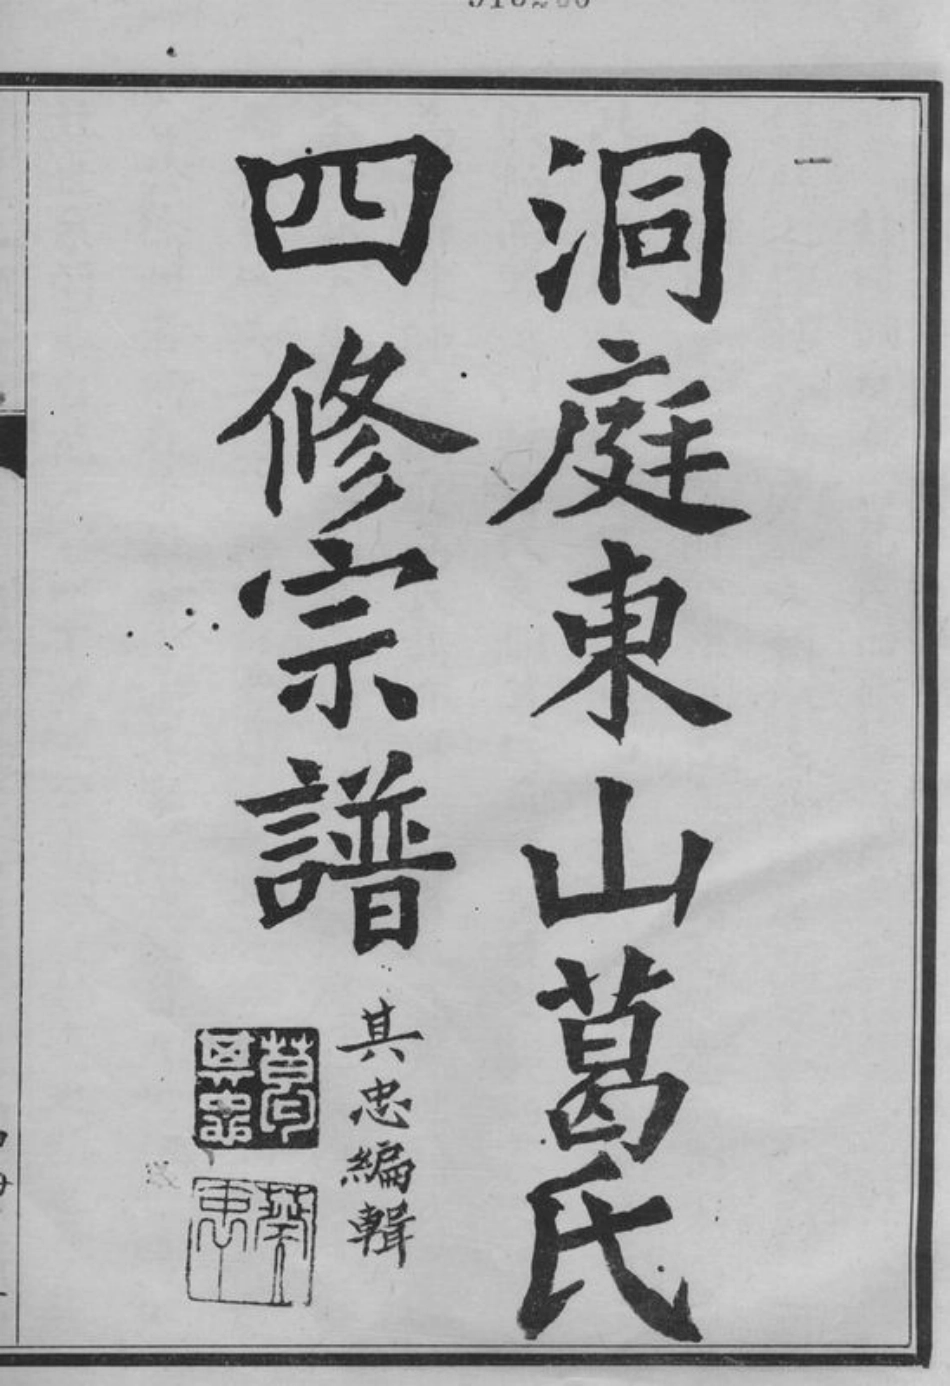 洞庭東山葛氏
四修宗譜
其忠編輯
葛其忠